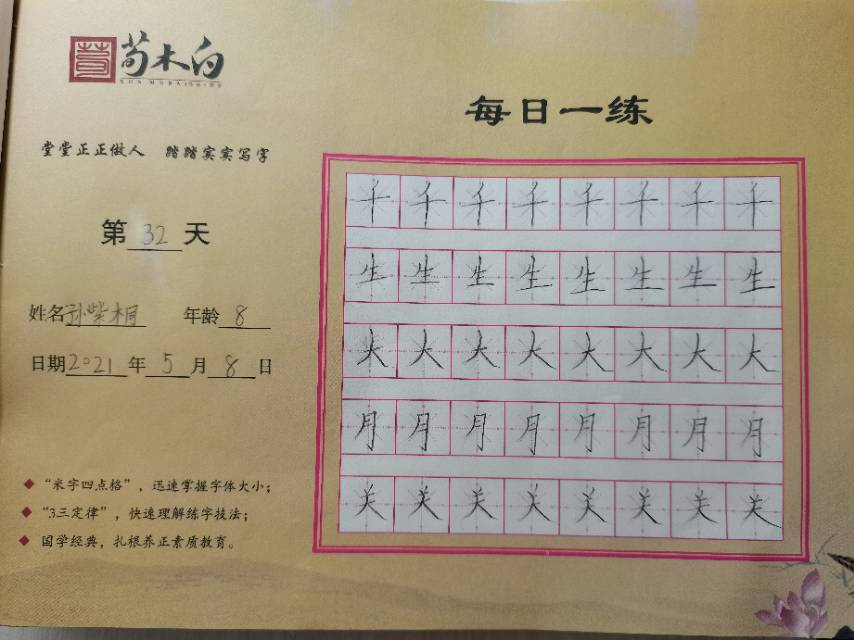 荀木白
每日一练
堂堂正正做人 踏踏实实写字
第32天
姓名孙柴桐 年龄8
日期2021年5月8日
千千千千千千千千
生生生生生生生生
大大大大大大大大
月月月月月月月月
关关关关关关关关
“米字四点格”，迅速掌握字体大小；
“3三定律”，快速理解练字技法；
国学经典，扎根养正素质教育。